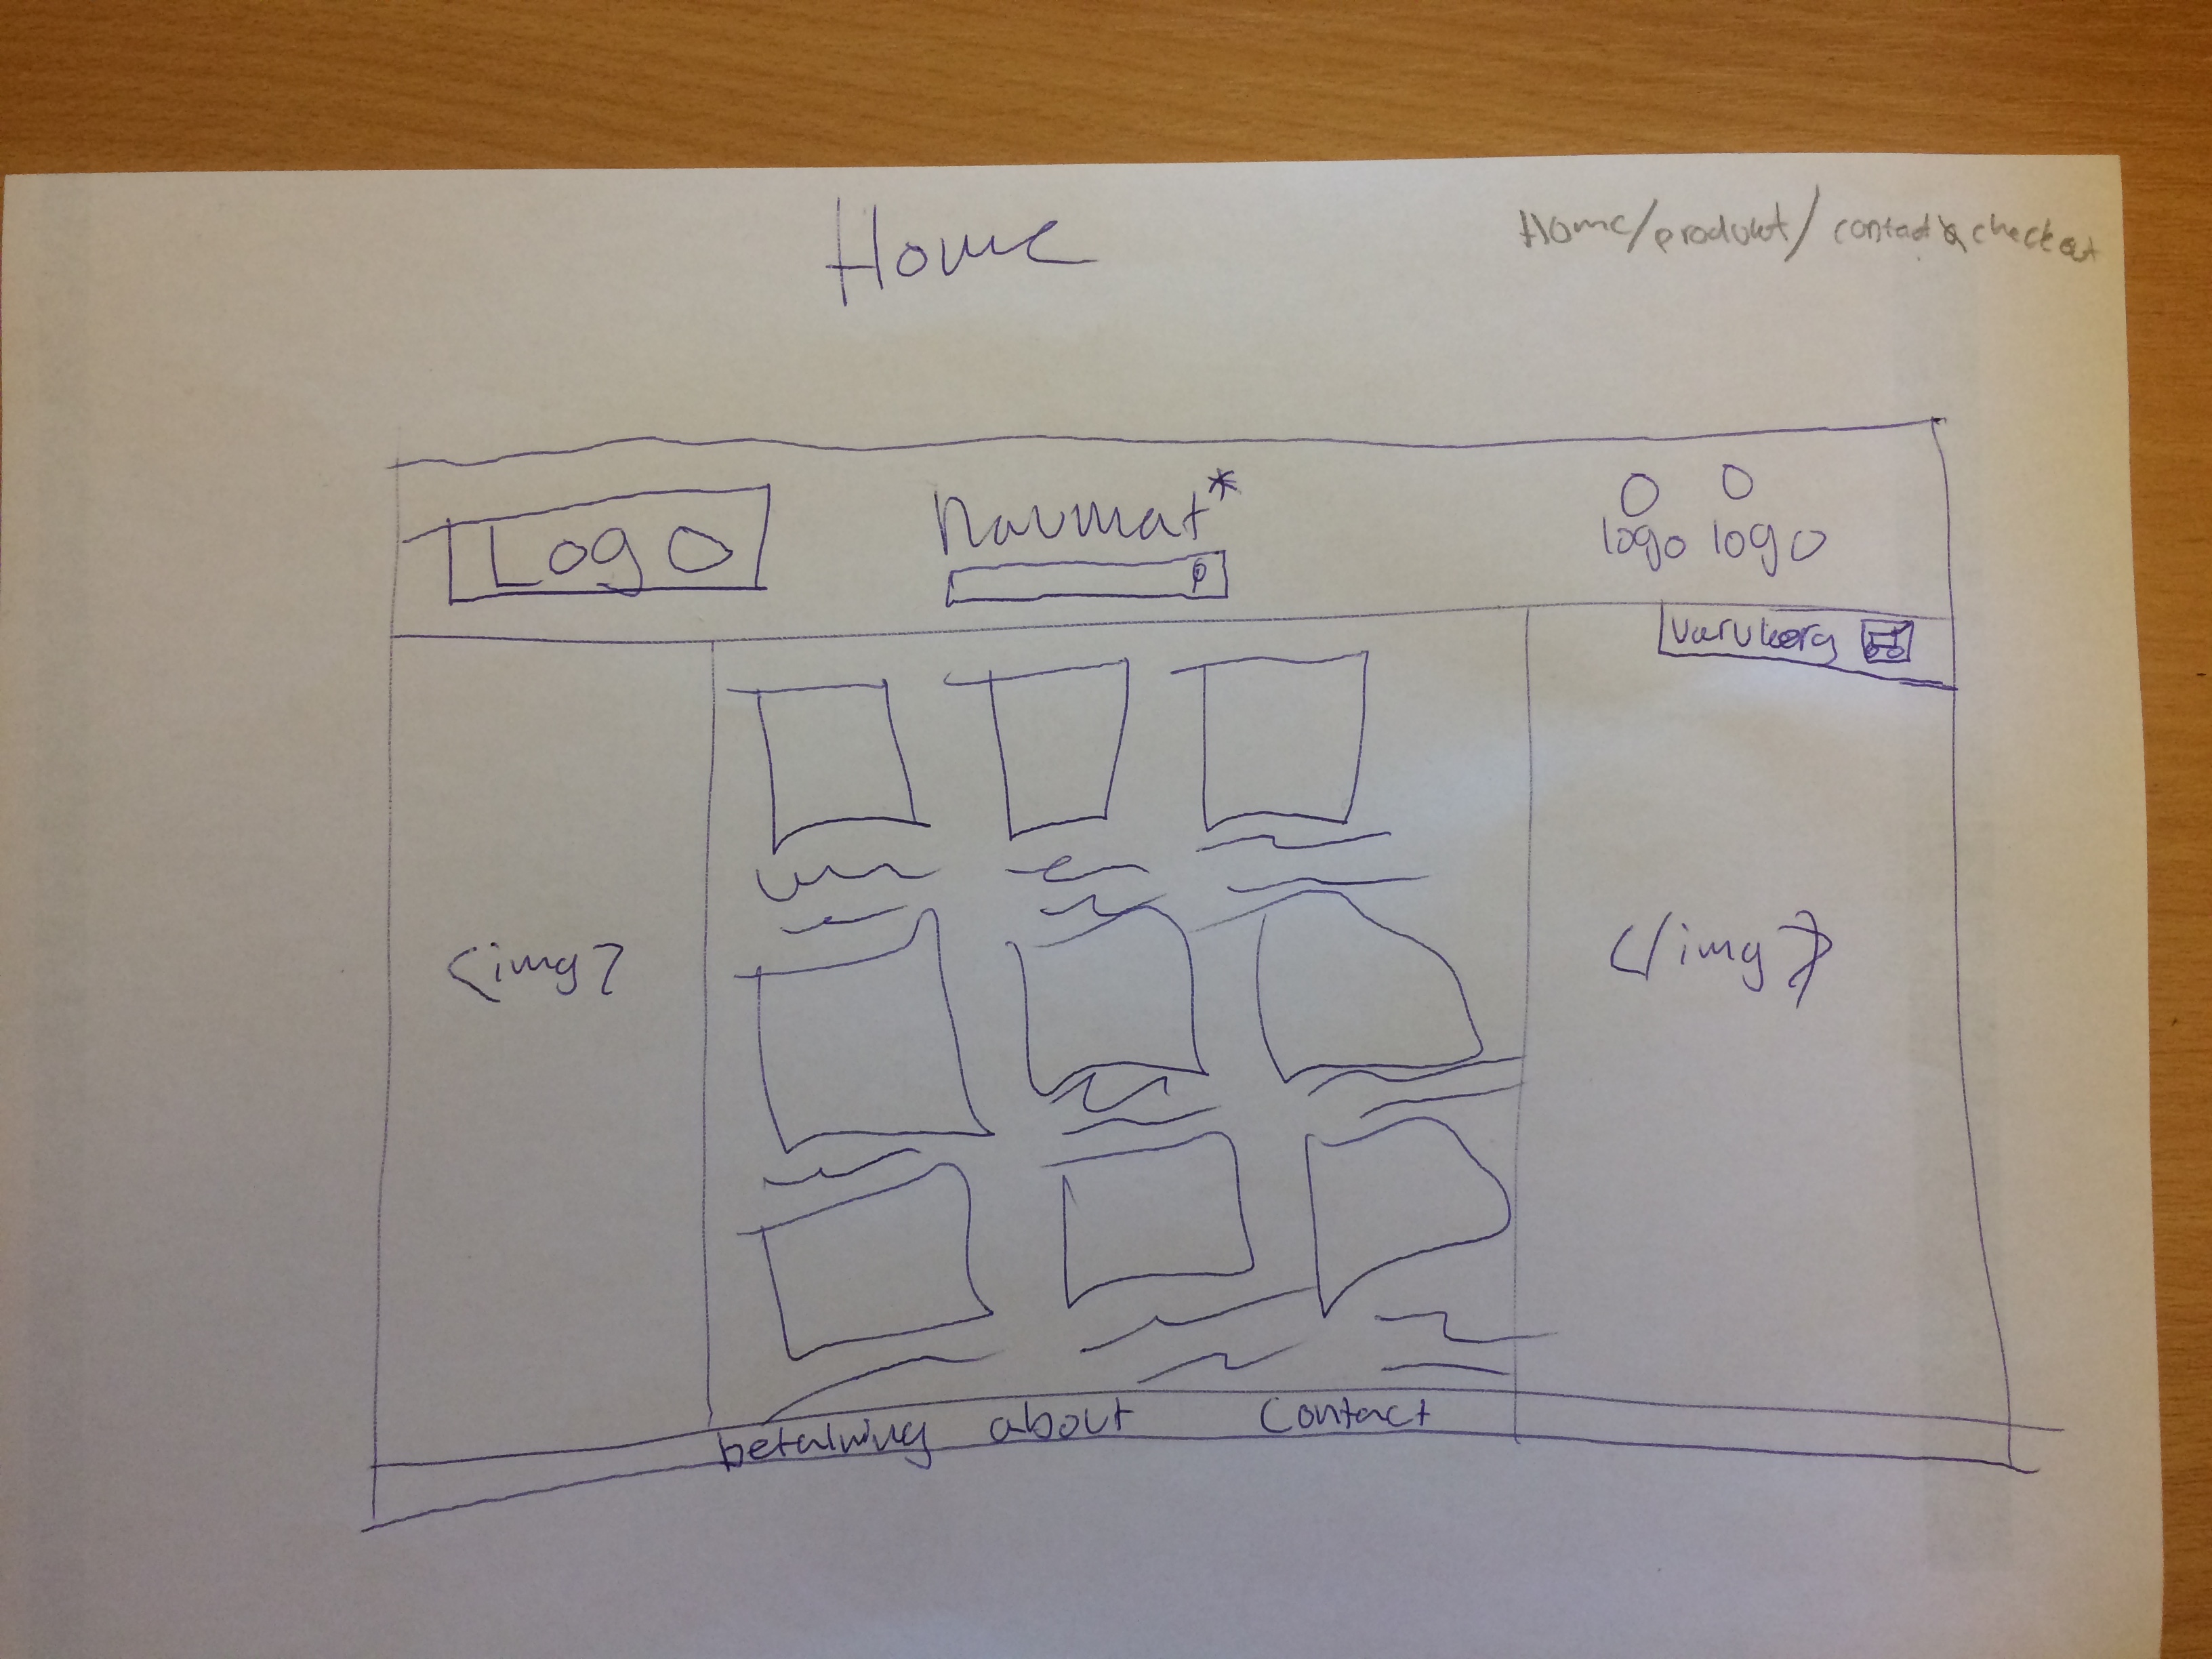 Home
Home/produkt/contact & checkout
Logo
Navmat*
logo logo
Varukorg
<img>
</img>
betalning about Contact